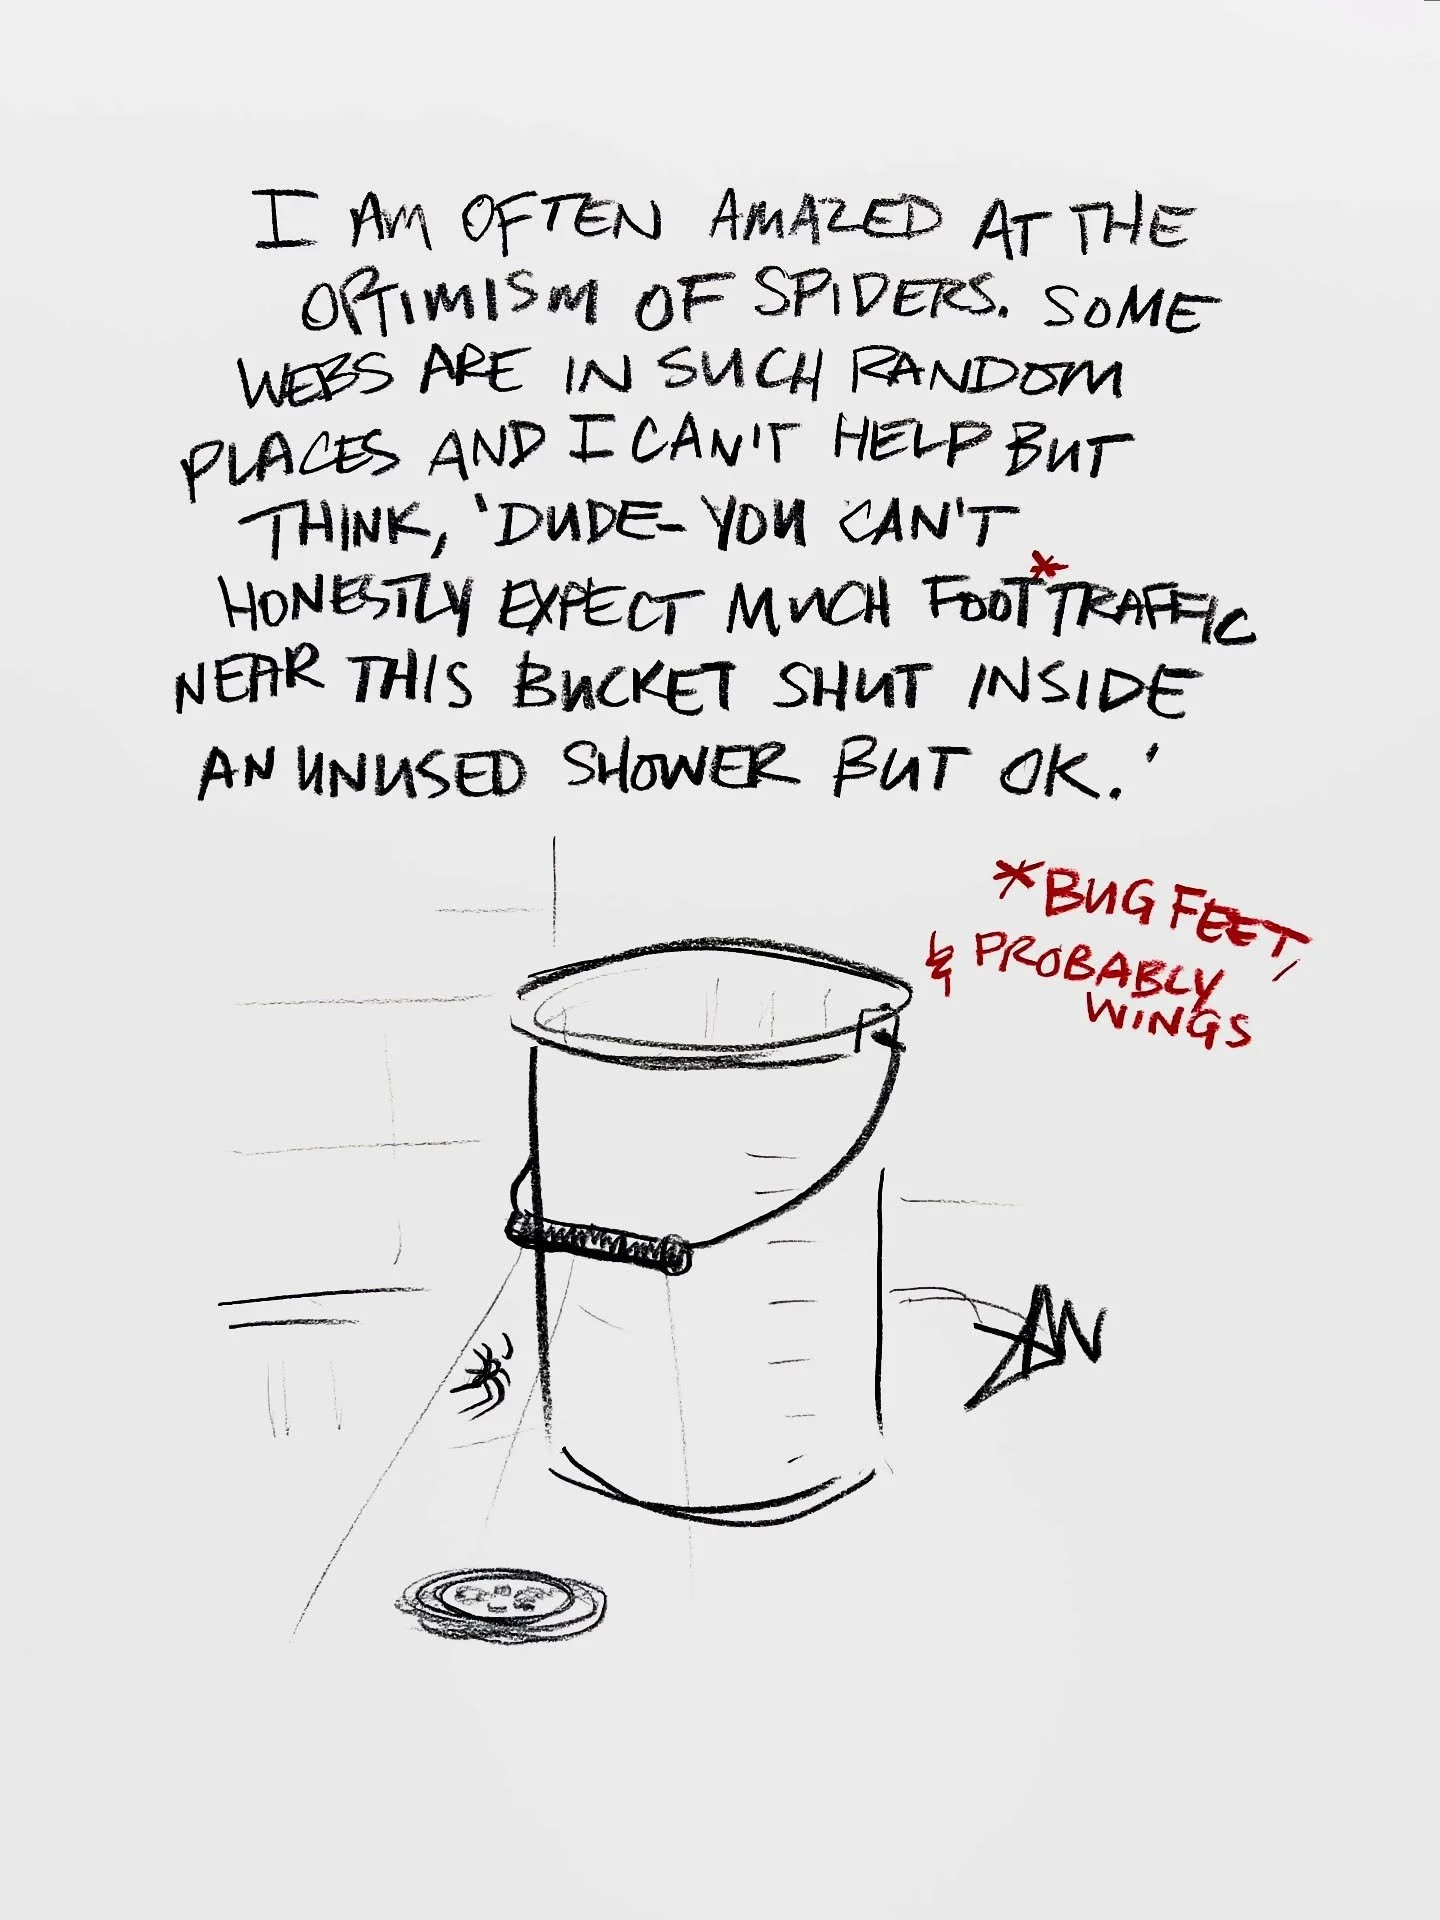 I AM OFTEN AMAZED AT THE
OPTIMISM OF SPIDERS. SOME
WEBS ARE IN SUCH RANDOM
PLACES AND I CAN'T HELP BUT
THINK, 'DUDE- YOU CAN'T
HONESTLY EXPECT MUCH FOOT*TRAFFIC
NEAR THIS BUCKET SHUT INSIDE
AN UNUSED SHOWER BUT OK.'
*BUG FEET,
& PROBABLY
WINGS